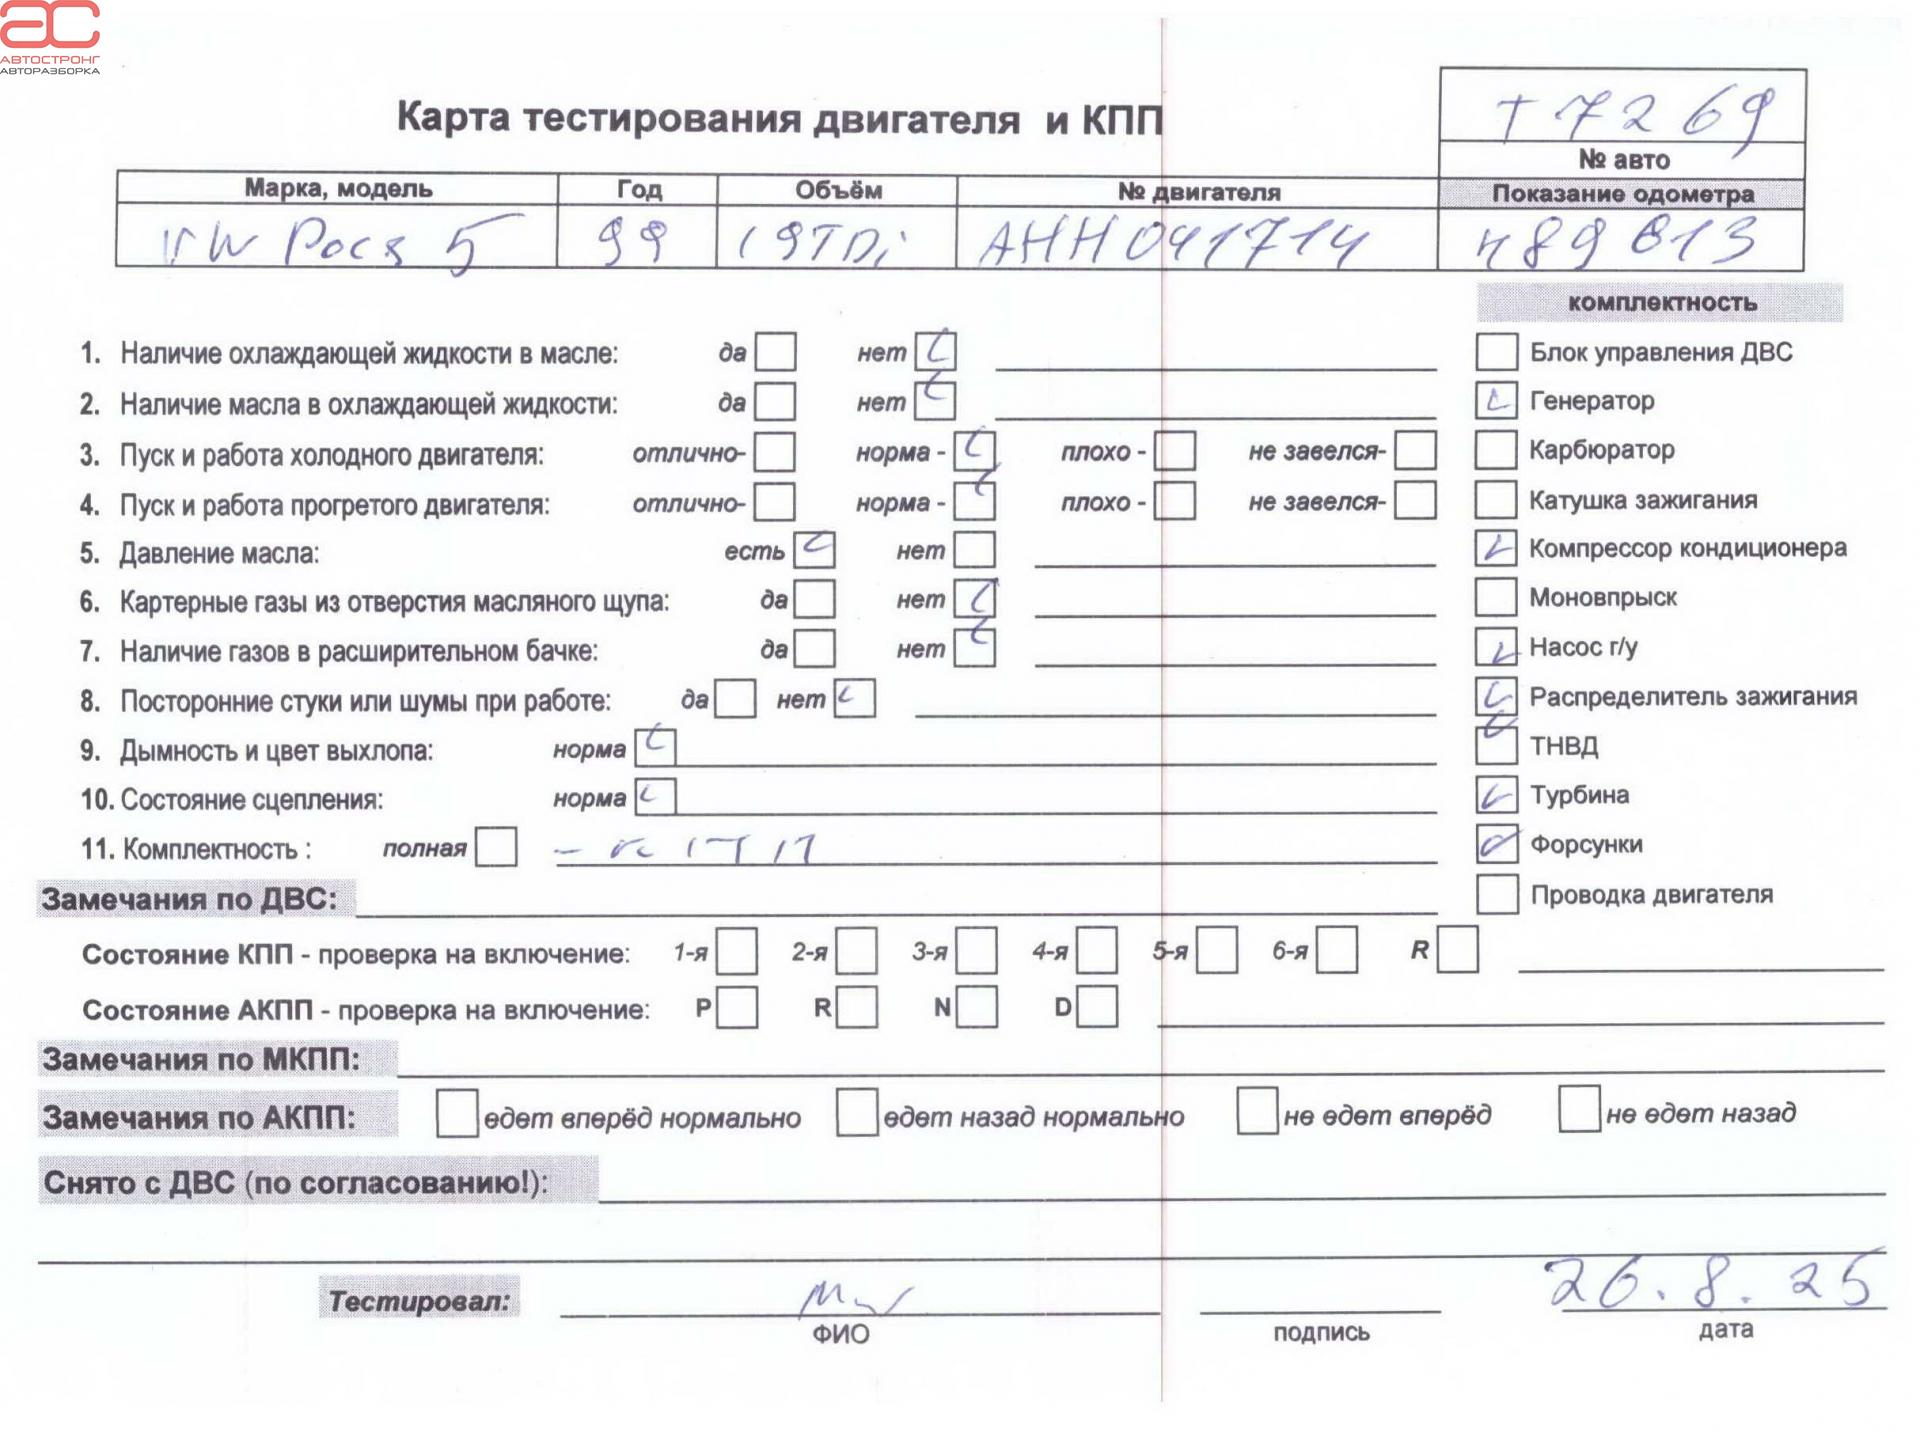 АС
АВТОСТРОНГ
АВТОРАЗБОРКА
Карта тестирования двигателя и КПП
Т 7269
№ авто
Марка, модель Год Объём № двигателя Показание одометра
VW 5 99 1 9TDi AHH041714 489613
комплектность
1. Наличие охлаждающей жидкости в масле: да нет
Блок управления ДВС
2. Наличие масла в охлаждающей жидкости: да нет
Генератор
3. Пуск и работа холодного двигателя: отлично- норма - плохо - не завелся-
Карбюратор
4. Пуск и работа прогретого двигателя: отлично- норма - плохо - не завелся-
Катушка зажигания
5. Давление масла: есть нет
Компрессор кондиционера
6. Картерные газы из отверстия масляного щупа: да нет
Моновпрыск
7. Наличие газов в расширительном бачке: да нет
Насос г/у
8. Посторонние стуки или шумы при работе: да нет
Распределитель зажигания
9. Дымность и цвет выхлопа: норма
ТНВД
10. Состояние сцепления: норма
Турбина
11. Комплектность : полная
Форсунки
Замечания по ДВС:
Проводка двигателя
Состояние КПП - проверка на включение: 1-я 2-я 3-я 4-я 5-я 6-я R
Состояние АКПП - проверка на включение: P R N D
Замечания по МКПП:
Замечания по АКПП: едет вперёд нормально едет назад нормально не едет вперёд не едет назад
Снято с ДВС (по согласованию!):
Тестировал:
26.8.25
ФИО подпись дата